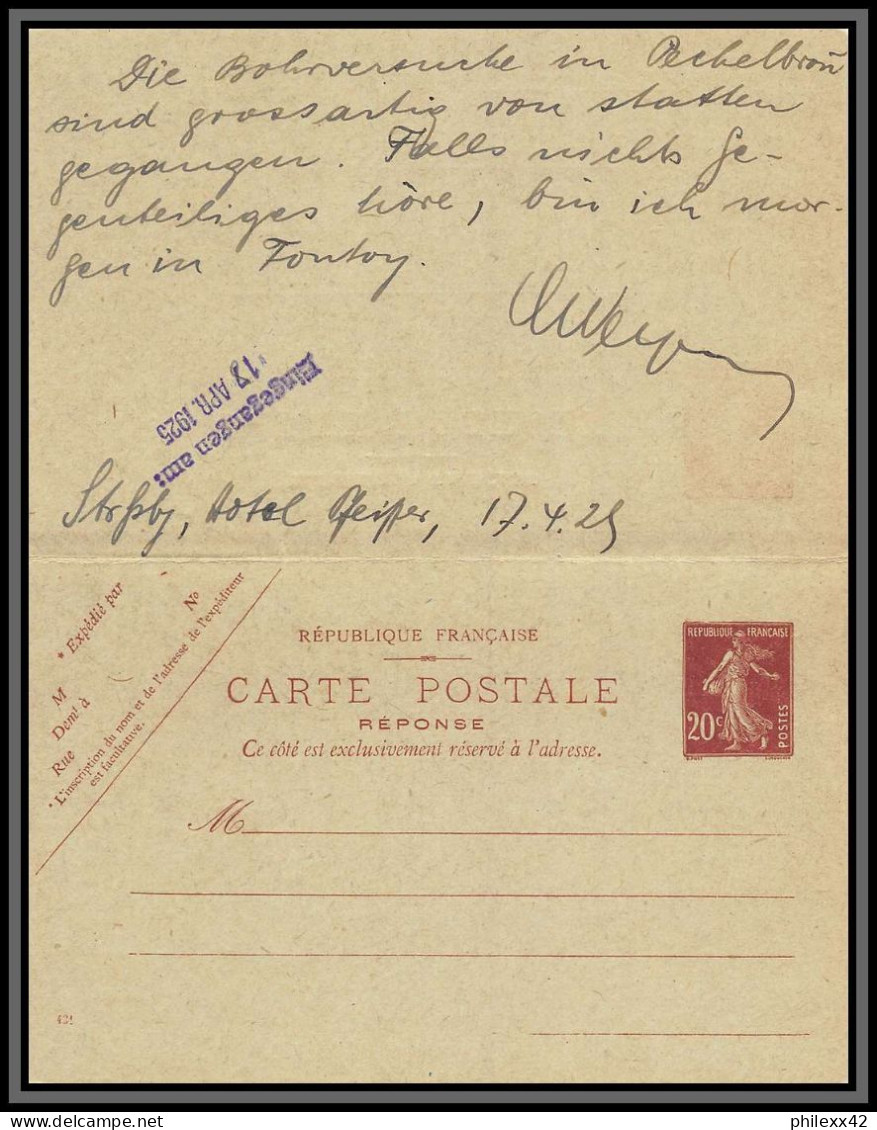 Die Bohrversuche in Pechelbroñ
sind grossartig von statten
gegangen. Falls nichts Ge-
genteiliges höre, bin ich mor-
gen in Fontoy.
Eingegangen am:
APR. 1925
Strßbg, Hotel Pfeiffer, 17.4.25
* Expédié par
N°
M
Demt à
Rue
* L'inscription du nom et de l'adresse de l'expéditeur
est facultative.
RÉPUBLIQUE FRANÇAISE
CARTE POSTALE
RÉPONSE
Ce côté est exclusivement réservé à l'adresse.
RÉPUBLIQUE FRANÇAISE
20c
POSTES
M
philexx42